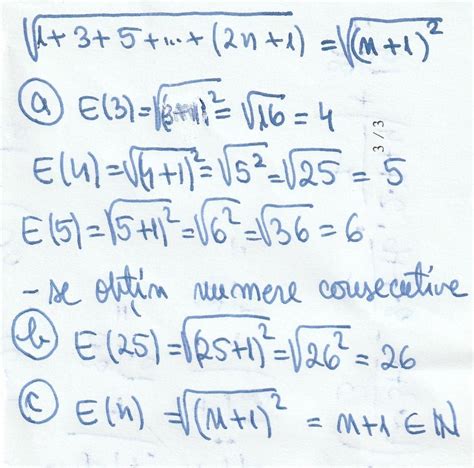 √1+3+5+...+(2n+1) = √(n+1)²
a) E(3)=√(3+1)² = √16 = 4
E(4)=√(4+1)² = √5² = √25 = 5
3/3
E(5)=√(5+1)² = √6² = √36 = 6
- se obțin numere consecutive
b) E(25)=√(25+1)² = √26² = 26
c) E(n) = √(n+1)² = n+1 ∈ ℕ